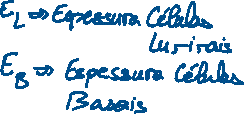 E_L ⇒ Espessura Células
Lutirais
E_B ⇒ Espessura Células
Basais